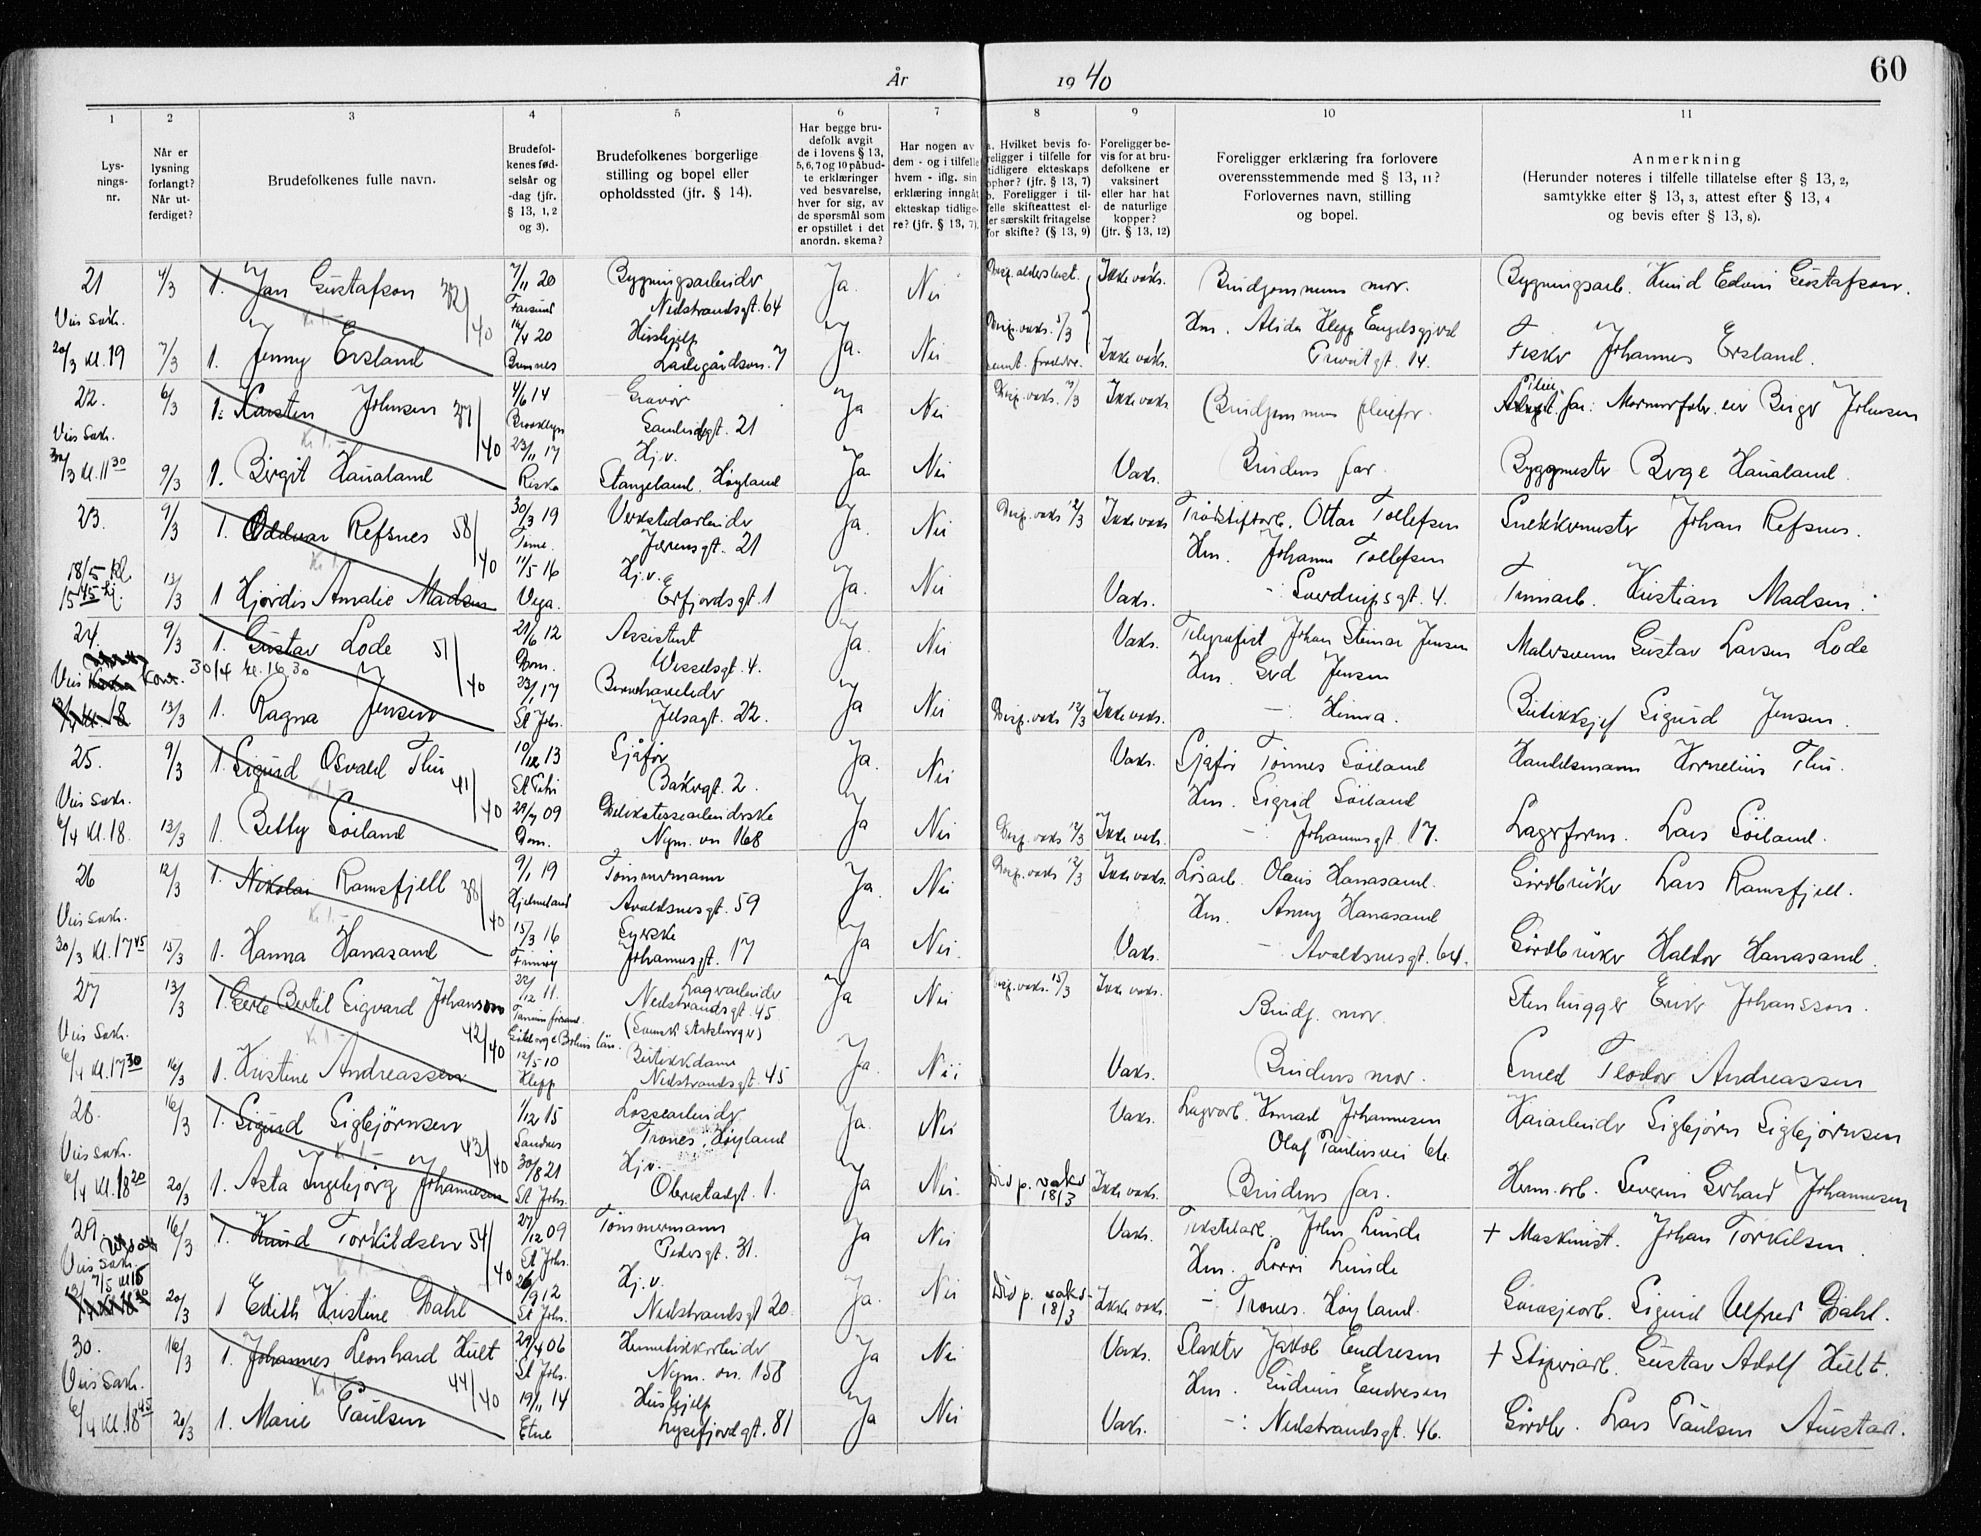 År 1940
60
1 2 3 4 5 6 7 8 9 10 11
Lysnings-nr.
Når er lysning forlangt? Når utferdiget?
Brudefolkenes fulle navn.
Brudefolkenes fødselsår og -dag (jfr. § 13, 1, 2 og 3).
Brudefolkenes borgerlige stilling og bopel eller opholdssted (jfr. § 14).
Har begge brudefolk avgit de i lovens § 13, 5, 6, 7 og 10 påbudte erklæringer ved besvarelse, hver for sig, av de spørsmål som er opstillet i det anordn. skema?
Har nogen av dem - og i tilfelle hvem - iflg. sin erklæring inngåt ekteskap tidligere? (jfr. § 13, 7).
a. Hvilket bevis foreligger i tilfelle for tidligere ekteskaps ophør? (jfr. § 13, 7) b. Foreligger i tilfelle skifteattest eller særskilt fritagelse for skifte? (§ 13, 9)
Foreligger bevis for at brudefolkene er vaksinert eller har hat de naturlige kopper? (jfr. § 13, 12)
Foreligger erklæring fra forlovere overensstemmende med § 13, 11? Forlovernes navn, stilling og bopel.
Anmerkning (Herunder noteres i tilfelle tillatelse efter § 13, 2, samtykke efter § 13, 3, attest efter § 13, 4 og bevis efter § 13, 8).
21 4/3 1. Jan Gustafson 32/40 7/11 20 Farsund Bygningsarbeider Nedstrandsgt. 64 Ja. Nei Ikke vaks. Brudgommens mor. Bygningsarb. Knud Edvin Gustafson.
Vies Sak. 20/3 kl. 19 7/3 1. Jenny Ersland 16/4 20 Bremnes Hushjelp Ladegårdsvn. 7 Ja. Nei Disp. vaks. 5/3 Ikke vaks. Hm. Alida Klepp Engelsgjerd Privatgt. 14. Fisker Johannes Ersland.
22. 6/3 1. Karsten Johnsen 37/40 4/6 14 Brooklyn Gravør Sandeidgt. 21 Ja Nei Disp. vaks. 7/3 Ikke vaks. Brudgommens pleiefar. Pleiefar: Mormorfabr. eier Birger Johnsen
Vies Sak. 30/3 kl. 11 30 9/3 1. Birgit Haualand 23/11 17 Riska Hj.v. Stangeland. Høyland Ja Nei Vaks. Brudens far. Byggmester Berge Haualand.
23. 9/3 1. Oddvar Refsnes 58/40 30/3 19 Time. Verkstedarbeider Jærensgt. 21 Ja. Nei Disp. vaks 12/3 Ikke vaks Trådstiftarb. Ottar Tollefsen Snekkermester Johan Refsnes.
18/5 kl. 15 45 Hj. 13/3 1 Hjørdis Amalie Madsen 11/5 16 Vega. Hj.v. Erfjordsgt. 1 Ja. Nei Vaks. Hm. Johanne Tollefsen -:- Sverdrupsgt. 4. Tinnarb. Kristian Madsen.
24. 9/3 1. Gustav Lode 51/40 21/6 12 Dom. Assistent Wesselsgt. 4. Ja. Nei Vaks. Telegrafist Johan Steinar Jensen Malersvenn Gustav Larsen Lode
Vies Kont. 30/4 kl. 16.30 13/3 1. Ragna Jensen 23/1 17 St Joh. Barnehaveleder Jelsagt. 22. Ja Nei Disp. vaks 12/3 Ikke vaks. Hm. Gerd Jensen -:- Hinna. Butikksjef Sigurd Jensen.
25. 9/3 1. Sigurd Osvald Thu 41/40 10/12 13 St Petri Sjåfør Bakergt. 2. Ja. Nei Vaks. Sjåfør Tønnes Söiland Handelsmann Kornelius Thu.
Vies Sak. 6/4 kl. 18. 13/3 1. Betty Söiland 29/7 09 Dom. Delikatessearbeiderske Nym. vn 168 Ja Nei Disp. vaks 12/3 Ikke vaks. Hm. Sigrid Söiland -:- Johannesgt. 17. Lagerform. Lars Söiland.
26 12/3 1. Nikolai Ramsfjell 38/40 9/1 19 Hjelmeland Tømmermann Avaldsnesgt. 59 Ja. Nei Disp. vaks 12/3 Ikke vaks. Løsarb. Olaus Hanasand. Gårdbruker Lars Ramsfjell.
Vies Sak. 30/3 kl. 17 45 15/3 1. Hanna Hanasand 15/3 16 Finnøy Syerske Johannesgt. 17 Ja Nei. Vaks. Hm. Anny Hanasand -:- Avaldsnesgt. 64. Gårdbruker Haldor Hanasand.
27 13/3 1. Gerte Bertil Sigvard Johansson 42/40 22/12 11. Göteborg o Bohus län. Lagerarbeider Nedstrandsgt. 45 (Svensk statsborger) Ja Nei Disp. vaks. 15/3 Ikke vaks Brudg. mor. Stenhugger Erik Johansson.
Vies Sak. 6/4 kl. 17 30 16/3 1. Kristine Andreassen 12/5 10 Klepp Butikkdame Nedstrandsgt. 45 Ja. Nei Vaks. Brudens mor. Smed Teodor Andreassen
28. 16/3 1. Sigurd Sigbjørnsen 43/40 1/12 15 Sandnes Lossearbeider Trones, Høyland Ja. Nei Vaks. Lagerarb. Konrad Johannesen Olaf Paulusvei 6b. Kaiarbeider Sigbjørn Sigbjørnsen
Vies Sak. 6/4 kl. 18 20 20/3 1. Asta Ingebjørg Johannesen 30/8 21 St Joh. Hj.v. Oberstadgt. 1. Ja Nei. Disp. vaks 18/3 Ikke vaks. Brudens far. Herm.arb. Severin Gerhard Johannesen
29. 16/3 1. Knud Torkildsen 54/40 27/12 09 St Joh. Tømmermann Pedersgt. 31. Ja Nei Vaks. Tekstilarb. John Lunde † Maskinist. Johan Torkelsen.
Vies Sak. 7/5 kl 15 20/3 1 Edith Kristine Dahl 26/9 12 St Joh. Hj.v. Nedstrandsgt 20. Ja. Nei Disp. vaks. 18/3 Ikke vaks. Hm. Lovri Lunde -:- Trones. Høyland. Garasjearb. Sigurd Alfred Dahl.
30. 16/3 1. Johannes Leonhard Hult 44/40 29/4 06 St Joh. Hermetikkarbeider Nym. vn. 158 Ja Nei Vaks. Slakter Jakob Endresen † Støperiarb. Gustav Adolf Hult.
Vies Sak. 6/4 kl. 18 45 20/3 1. Marie Paulsen 19/11 14 Etne Hushjelp Lysefjordgt. 81 Ja Nei Vaks. Hm. Gudrun Endresen -:- Nedstrandsgt. 46. Gårdbr. Lars Paulsen Austad.